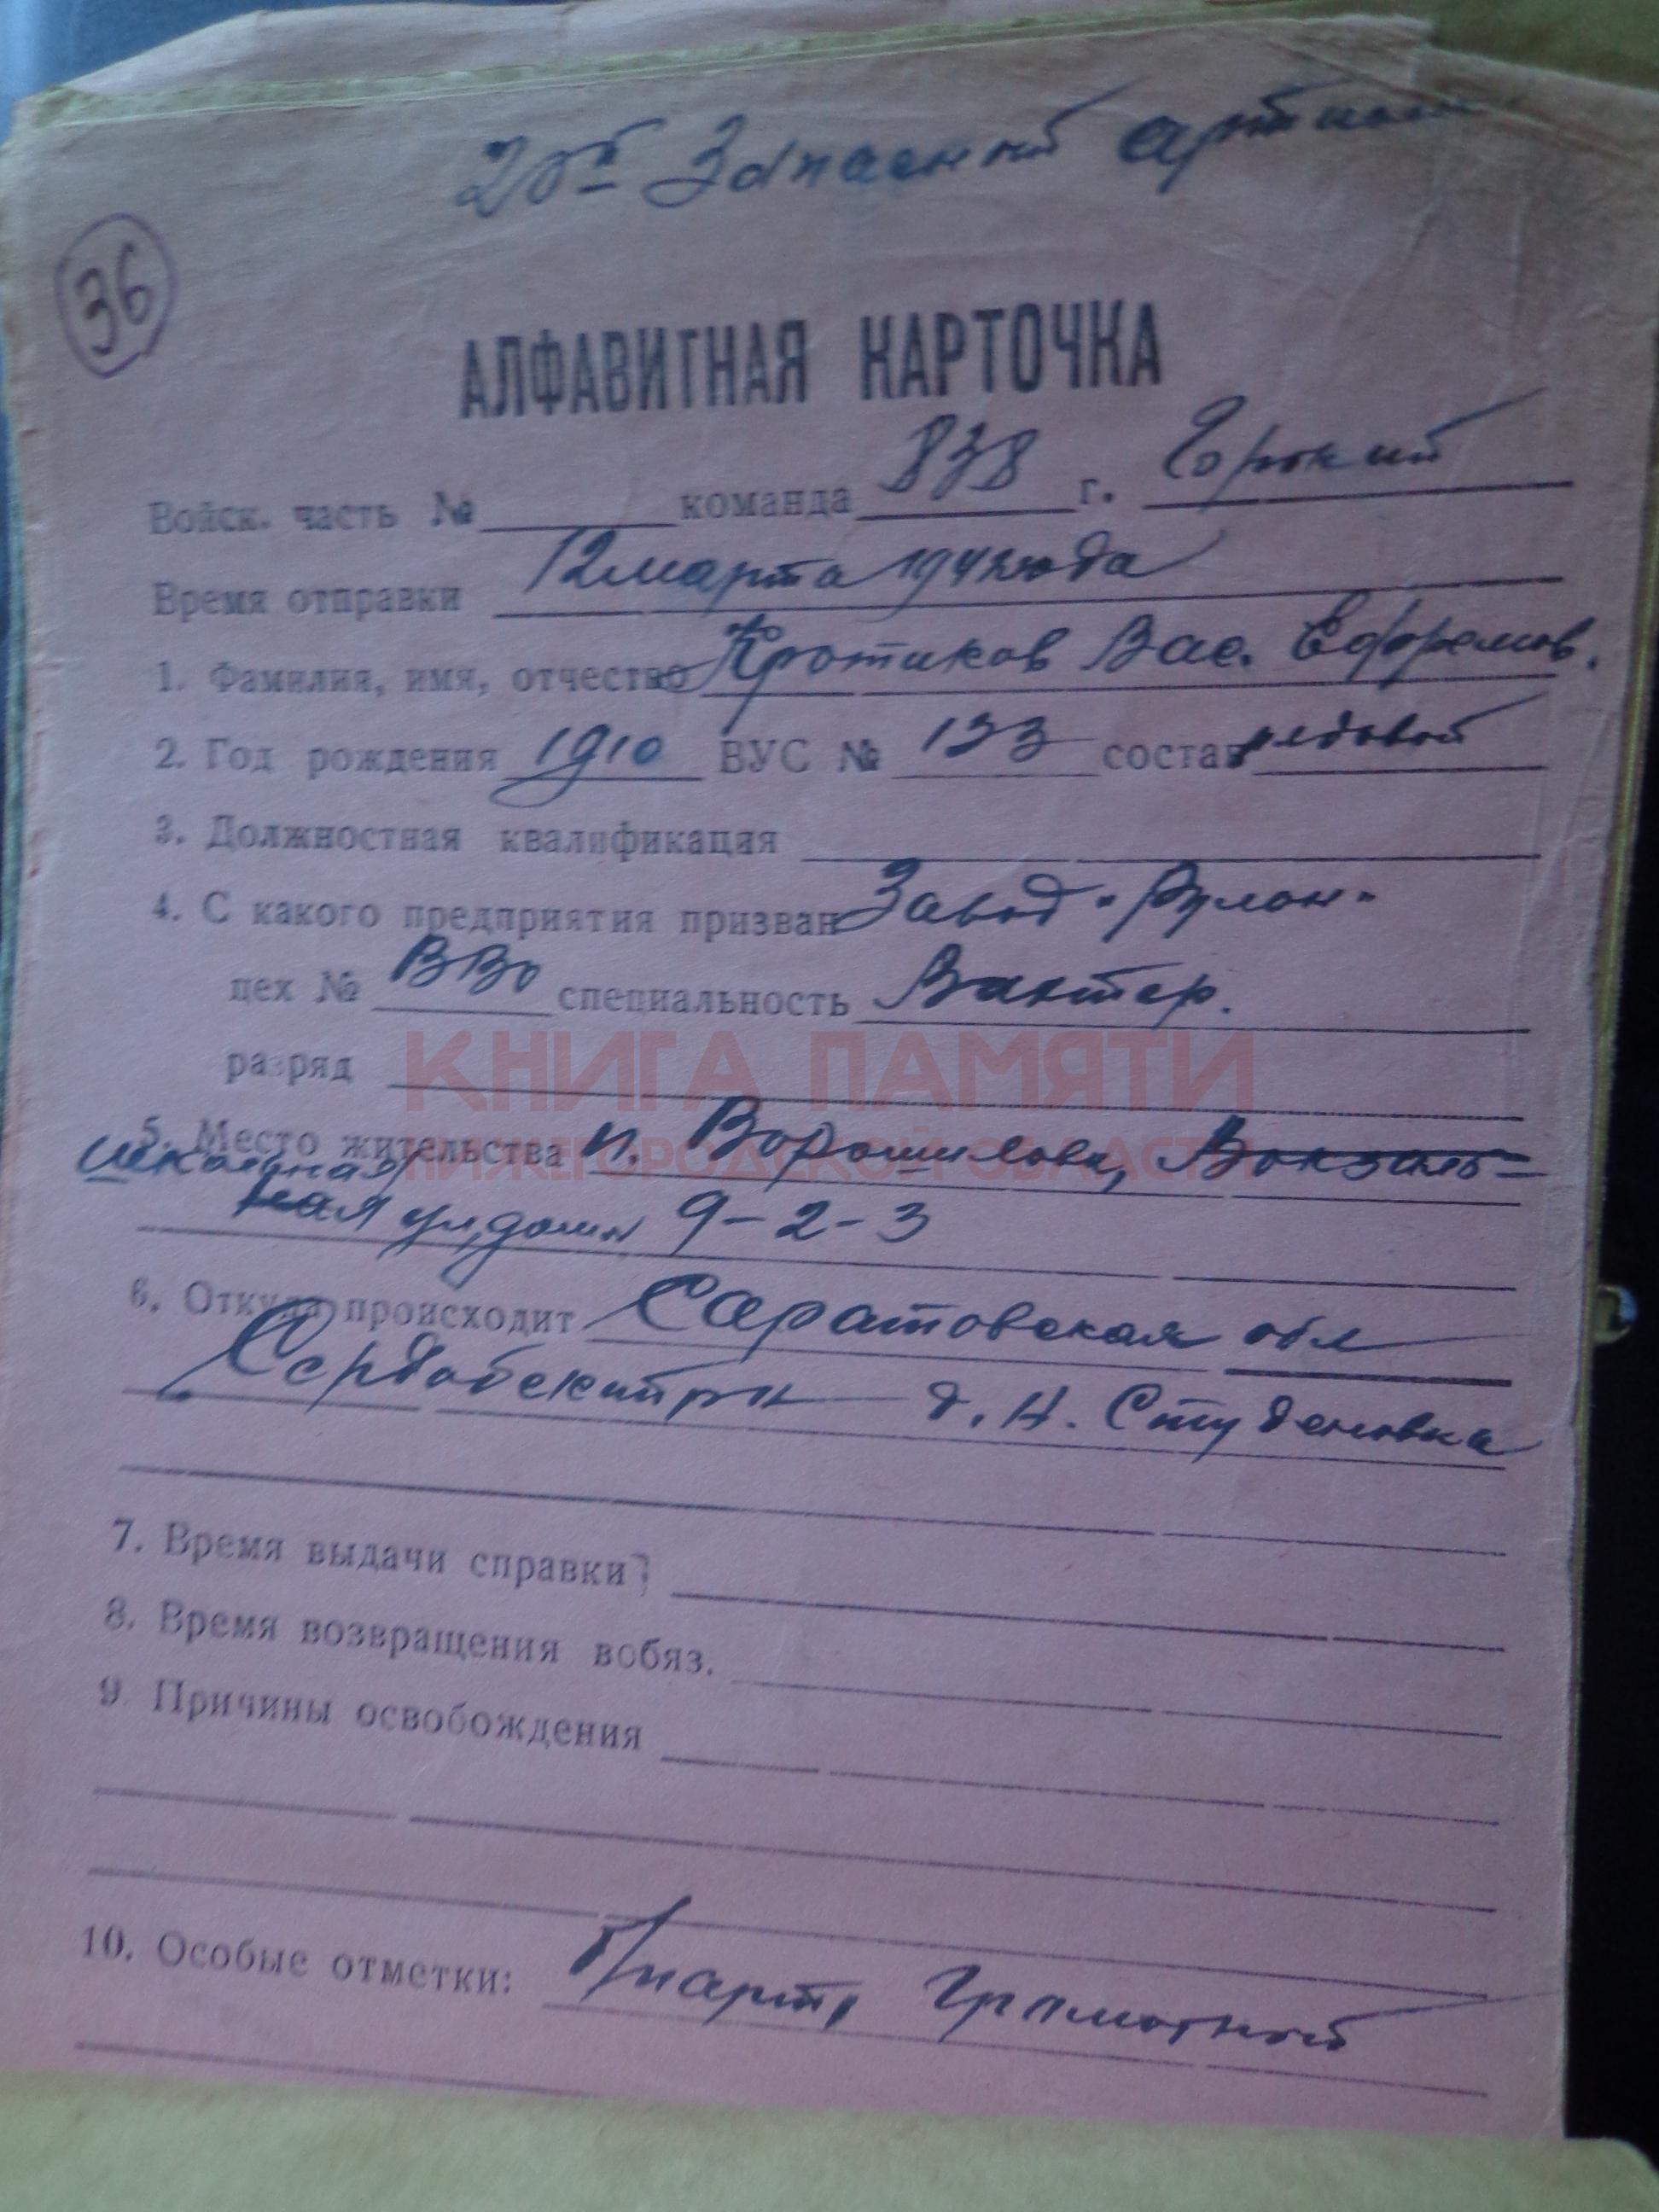 Запасной
36
АЛФАВИТНАЯ КАРТОЧКА
Войск. часть № команда 838 г. Горький
Время отправки 12 марта 1942 года
1. Фамилия, имя, отчество Кротиков Вас. Ефремов.
2. Год рождения 1910 ВУС № 133 состав рядовой
3. Должностная квалификация
4. С какого предприятия призван Завод "Рулон"
цех № ВВО специальность Вахтер.
разряд
КНИГА ПАМЯТИ
НИЖЕГОРОДСКОЙ ОБЛАСТИ
5. Место жительства п. Ворошилова, Вокзаль-
школьная
ная ул, дом 9-2-3
6. Откуда происходит Саратовская обл
Сердобский рн д. Н. Студеновка
7. Время выдачи справки
8. Время возвращения вобяз.
9. Причины освобождения
10. Особые отметки: б/парт, грамотный